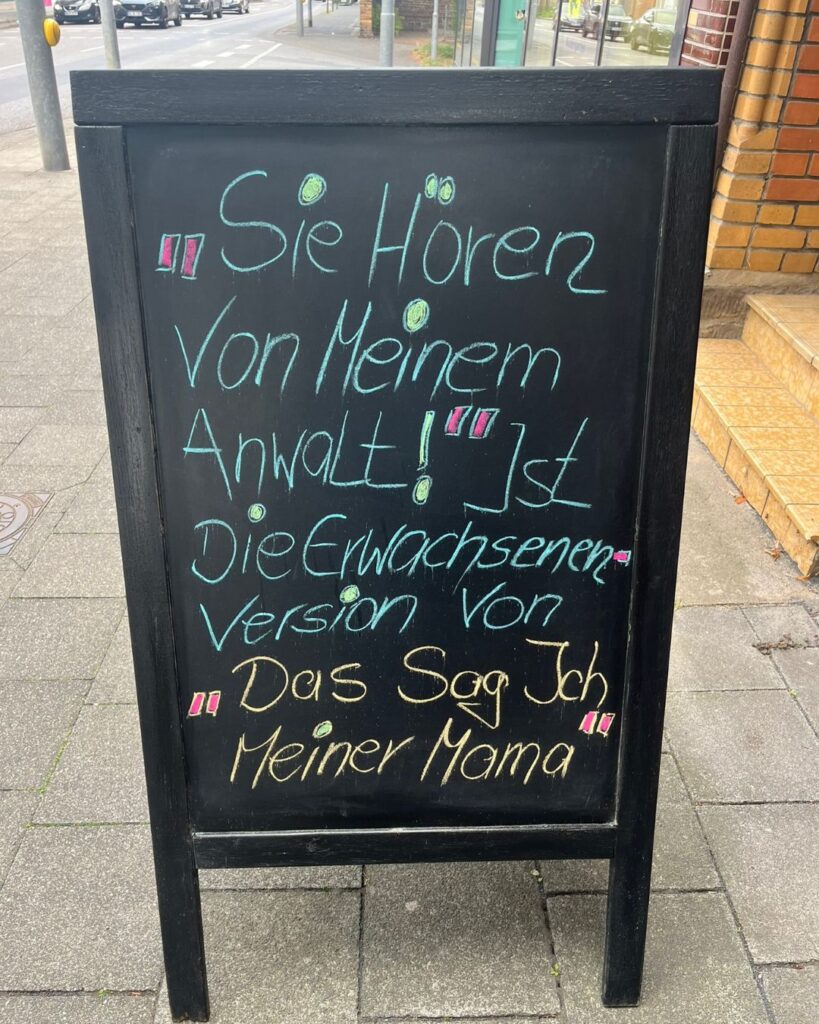 "Sie Hören
Von Meinem
Anwalt!" Ist
Die Erwachsenen-
version Von
"Das Sag Ich
Meiner Mama"